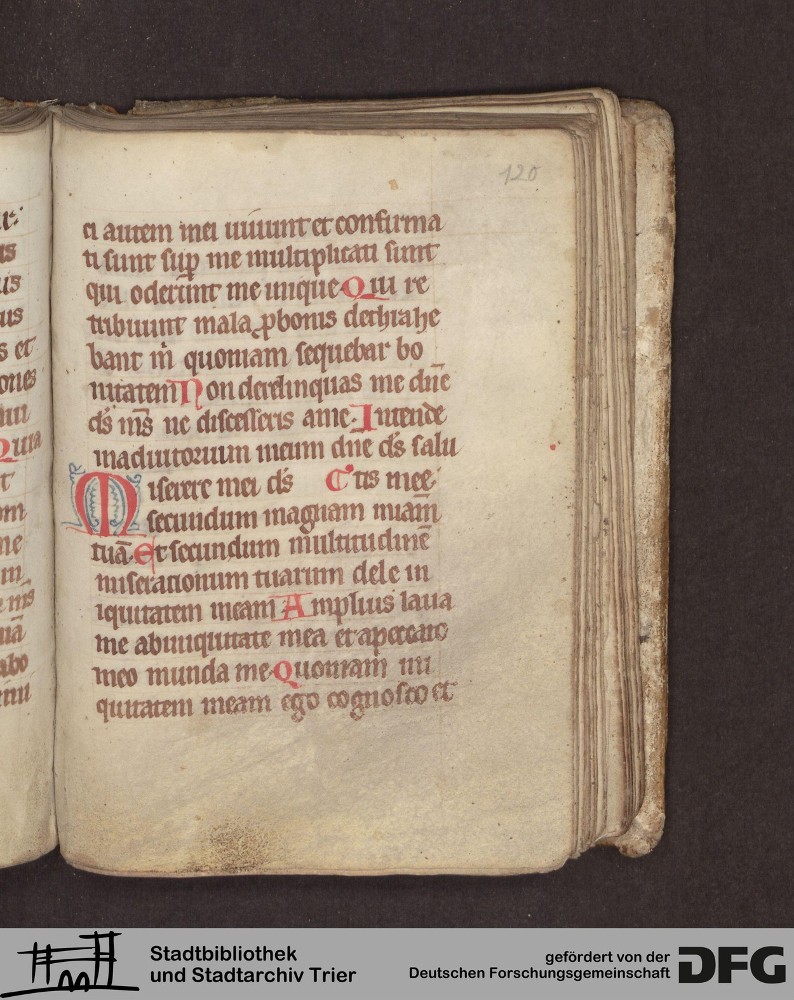 120
ci autem mei uiuunt et confirma
ti sunt sup̄ me multiplicati sunt
qui oderunt me inique Qui re
tribuunt mala ꝓ bonis dethrahe
bant m̄ quoniam sequebar bo
nitatem Non derelinquas me dn̄e
ds̄ ms̄ ne discesseris a me Intende
in adiutorium meum dn̄e ds̄ salu
Miserere mei ds̄ tis mee
secundum magnam miam̄
tuā Et secundum multitudinē
miserationum tuarum dele in
iquitatem meam Amplius laua
me ab iniquitate mea et a peccato
meo munda me Quoniam ini
quitatem meam ego cognosco et
Stadtbibliothek
und Stadtarchiv Trier
gefördert von der
Deutschen Forschungsgemeinschaft
DFG